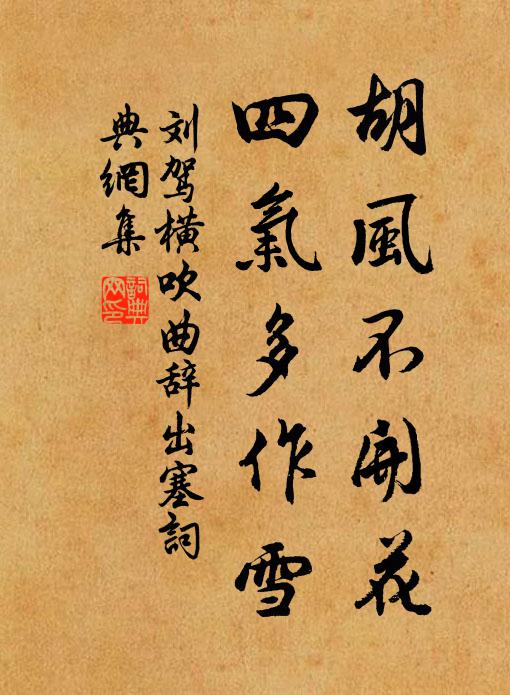 胡風不開花
四氣多作雪
刘駕橫吹曲辞出塞詞
典網集
詞典网印